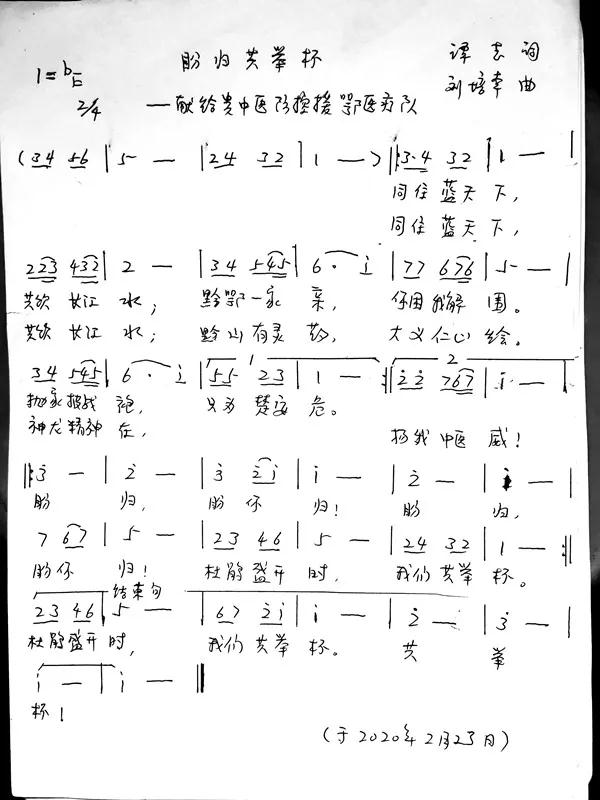 盼归共举杯
谭志 词
1=♭E 2/4
刘培幸 曲
——献给贵中医附院援鄂医疗队
(34 56 | 5 — | 24 32 | 1 — ) ‖: 3·4 32 | 1 — |
同住蓝天下,
同住蓝天下,
223 432 | 2 — | 34 545 | 6· i | 77 676 | 5 — |
共饮长江水; 黔鄂一家亲, 你困我解围。
共饮长江水; 黔山有灵药, 大义仁心绘。
34 545 | 6· i | 1 55 23 | 1 — :‖ 2 22 767 | i — |
抛家披战袍, 只为楚安危。
神龙精神在, 扬我中医威!
‖: 3 — | 2 — | 3 2i | i — | 2 — | i — |
盼归, 盼你归! 盼归,
7 67 | 5 — | 23 46 | 5 — | 24 32 | 1 — :‖
盼你归! 杜鹃盛开时, 我们共举杯。
结束句
23 46 | 5 — | 67 2i | i — | 2 — | 3 — |
杜鹃盛开时, 我们共举杯。 共举
i — | i — ‖
杯!
(于2020年2月23日)